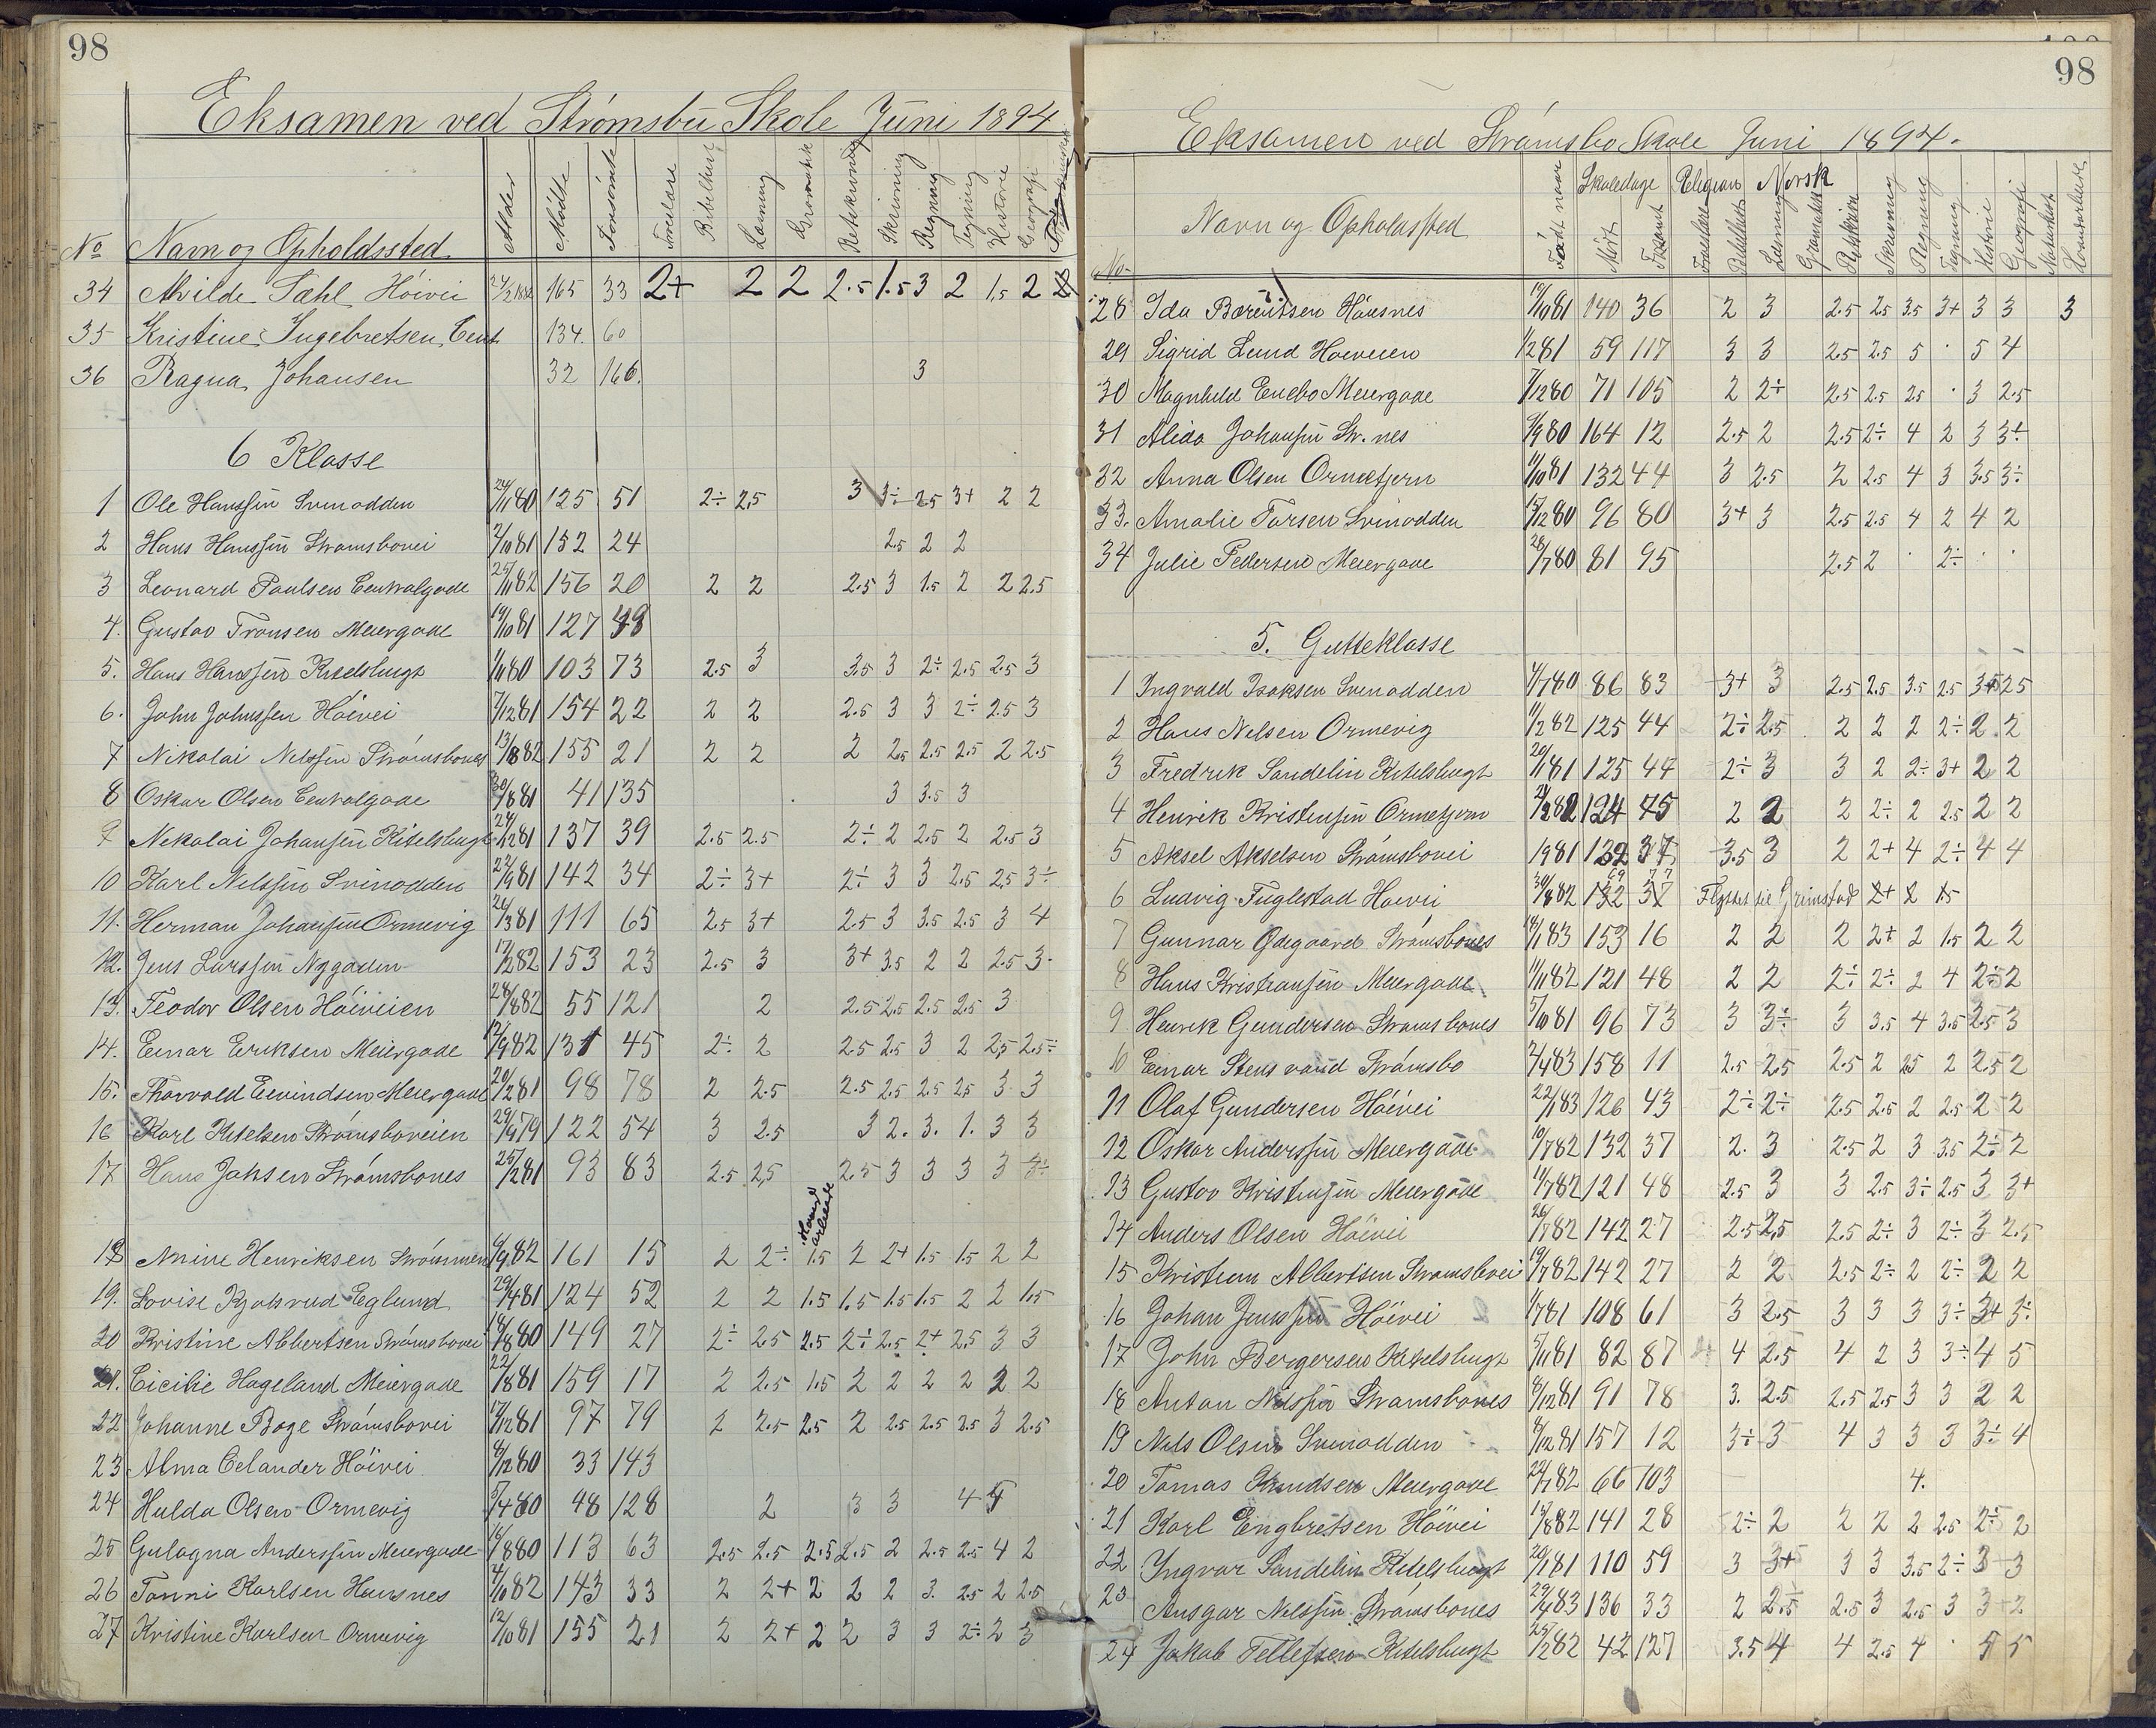 98
Eksamen ved Strømsbu Skole Juni 1894
No Navn og Opholdssted Alder Mødte Forsømte Troeslære Bibelhist Læsning Grammatik Retskrivning Skrivning Regning Tegning Historie Geografi
34 Alvilde Sæhl Höivei 165 33 2+ 2 2 2.5 1.5 3 2 1.5 2
35 Kristine Ingebretsen, Cent 134. 60
36 Ragna Johansen 32 166. 3
6 Klasse
1 Ole Hanssen Svinodden 24/11 80 125 51 2÷ 2,5 3 3÷ 2.5 3+ 2 2
2 Hans Hanssen Strømsbovei 2/10 81 152 24 2.5 2 2
3 Leonard Paulsen Centralgade 25/11 82 156 20 2 2 2.5 3 1.5 2 2 2.5
4. Gustav Fransen Meiergade 19/10 81 127
5. Hans Hanssen Kitelsbugt 1/11 80 103 73 2.5 3 3.5 3 2÷ 2.5 2.5 3
6. John Johnssen Höivei 7/12 81 154 22 2 2 2.5 3 3 2÷ 2.5 3
7 Nikolai Nelssen Strømsbones 13/8 82 155 21 2 2 2 2.5 2.5 2.5 2 2.5
8 Oskar Olsen Centralgade 30/8 81 41 135 3 3.5 3
9 Nekolai Johansen Kitelsbugt 24/12 81 137 39 2.5 2.5 2÷ 2 2.5 2 2.5 3
10 Karl Nelssen Svinodden 22/9 81 142 34 2÷ 3+ 2÷ 3 3 2.5 2,5 3÷
11. Herman Johansen Ormevig 26/3 81 111 65 2.5 3+ 2.5 3 3.5 2.5 3 4
12. Jens Larssen Nygaden 17/2 82 153 23 2.5 3 3+ 3.5 2 2 2.5 3.
13. Teodor Olsen Höiveien 28/8 82 55 121 2 2.5 2.5 2.5 2.5 3
14. Einar Eriksen Meiergade 12/9 82 131 45 2÷ 2 2.5 2.5 3 2 2,5 2.5÷
15. Thorvald Eivindsen Meiergade 20/2 81 98 78 2 2.5 2.5 2.5 2.5 2,5 3 3
16 Karl Kitelsen Strømsboveien 29/9 79 122 54 3 2.5 3 2. 3. 1. 3 3
17 Hans Jahsen Strømsbones 25/2 81 93 83 2.5 2,5 2.5 3 3 3 3 3÷
Haandarbeide
18 Mine Henriksen Strømmen 6/9 82 161 15 2 2÷ 1.5 2 2+ 1.5 1.5 2 2
19. Lovise Kjølsrud Eglund 29/4 81 124 52 2 2 1.5 1.5 1.5 1.5 2 2 1.5
20 Kristine Albertsen Strømsbovei 18/8 80 149 27 2÷ 2.5 2.5 2÷ 2.5 2+ 2.5 3 3
21. Cicilie Hageland Meiergade 22/8 81 159 17 2 2.5 1.5 2 2 2 2 2 2
22 Johanne Boge Strømsbovei 17/12 81 97 79 2 2.5 2.5 2 2.5 2.5 2.5 3 2.5
23 Alma Celander Höivei 8/12 80 33 143
24 Hulda Olsen Ormevig 5/4 80 48 128 2 3 3 4
25 Gulagna Anderssen Meiergade 16/8 80 113 63 2.5 2.5 2.5 2.5 2 2.5 2.5 4 2
26 Tanni Karlsen Hausnes 4/10 82 143 33 2 2+ 2 2 2 3. 2.5 2 2.5
27 Kristine Karlsen Ormevig 12/10 81 155 21 2 2+ 2 2 3 3 2÷ 2 3
98
Eksamen ved Strømsbo Skole Juni 1894.
Skoledage Religion Norsk
No- Navn og Opholdssted Født naar Mødt Forsømt Troeslære Bibelhist Læsning Gramatik Retskriv Skrivning Regning Tegning Historie Geografi Naturhist Haandarbeide
28 Ida Berentsen Hausnes 19/10 81 140 36 2 3 2.5 2.5 3.5 3+ 3 3 3
29 Sigrid Lund Hoiveien 1/2 81 59 117 3 3 2.5 2.5 5 . 5 4
30 Magnhild Enebo Meiergade 7/12 80 71 105 2 2÷ 2.5 2.5 2.5 . 3 2.5
31 Alida Johansen Str.nes 9/9 80 164 12 2.5 2 2.5 2÷ 4 2 3 3÷
32 Anna Olsen Ormetjern 11/10 81 132 44 3 2.5 2 2.5 4 3 3.5 3÷
33. Amalie Tarsen Svinodden 15/12 80 96 80 3+ 3 2.5 2.5 4 2 4 2
34 Julie Pedersen Meiergade 28/7 80 81 95 2.5 2 . 2÷ . .
5. Gutteklasse
1 Ingvald Isaksen Svinodden 4/7 80 86 83 3+ 3 2.5 2.5 3.5 2.5 2.5
2 Hans Nelsen Ormevig 11/2 82 125 44 2÷ 2.5 2 2 2 2÷ 2 2
3 Fredrik Sandelin Kitelsbugt 20/11 81 125 44 2÷ 3 3 2 2÷ 3+ 2 2
4 Henrik Kristensen Ormetjern 21/2 82 124 45 2 2 2 2÷ 2 2.5 2 2
5 Aksel Akselsen Strømsbovei 19 81 132 37 3.5 3 2 2+ 4 2÷ 4 4
6 Ludvig Fuglestad Hoivei 30/8 82 132 37 Flyttet til Grimstad 2+ 2 1.5
7 Gunnar Ødegaard Strømsbones 18/1 83 153 16 2 2 2 2+ 2 1.5 2 2
8 Hans Kristiansen Meiergade 11/11 82 121 48 2 2 2÷ 2÷ 2 4 2÷ 2
9 Henrik Gundersen Strømsbones 5/10 81 96 73 3 3÷ 3 3.5 4 3.5 2.5 3
10 Einar Stensvand Strømsbo 2/4 83 158 11 2.5 2.5 2.5 2 2.5 2 2.5 2
11 Olaf Gundersen Höivei 22/1 83 126 43 2÷ 2÷ 2.5 2.5 2 2.5 2 2
12 Oskar Anderssen Meiergade 10/7 82 132 37 2. 3 2.5 2 3 3.5 2÷ 2
13 Gustav Kristensen Meiergade 11/7 82 121 48 2.5 3 3 2.5 3÷ 2.5 3 3+
14 Anders Olsen Höivei 26/7 82 142 27 2.5 2,5 2.5 2÷ 3 2÷ 3 2.5
15 Kristian Albertsen Strømsbovei 19/7 82 142 27 2 2 2.5 2÷ 2 2÷ 2 2
16 Johan Jenssen Höivei 1/7 81 108 61 3 2.5 3 3 3 3÷ 3+ 3÷
17 John Bergersen Kitelsbugt 5/11 81 82 87 4 2.5 4 2 3 3÷ 4 5
18 Anton Nilssen Strømsbones 8/12 81 91 78 3. 2.5 2.5 2.5 3 3 2 2
19 Nils Olsen Svinodden 8/12 81 157 12 3÷ 3 4 3 3 3 3÷ 4
20 Tomas Knudsen Meiergade 22/7 82 66 103 4.
21 Karl Engbretsen Höivei 15/8 82 141 28 2÷ 2 2 2 2 2.5 2÷ 2
22 Yngvar Sandelin Kitelsbugt 20/1 81 110 59 3 3+ 3 3 3.5 2÷ 3 3
23 Ansgar Nelssen Strømsbones 29/4 83 136 33 2 2.5 2.5 3 2.5 3 3 2
24 Jakob Tellefsen Kitelsbugt 25/2 82 42 127 3.5 4 4 2.5 4 . 5 5